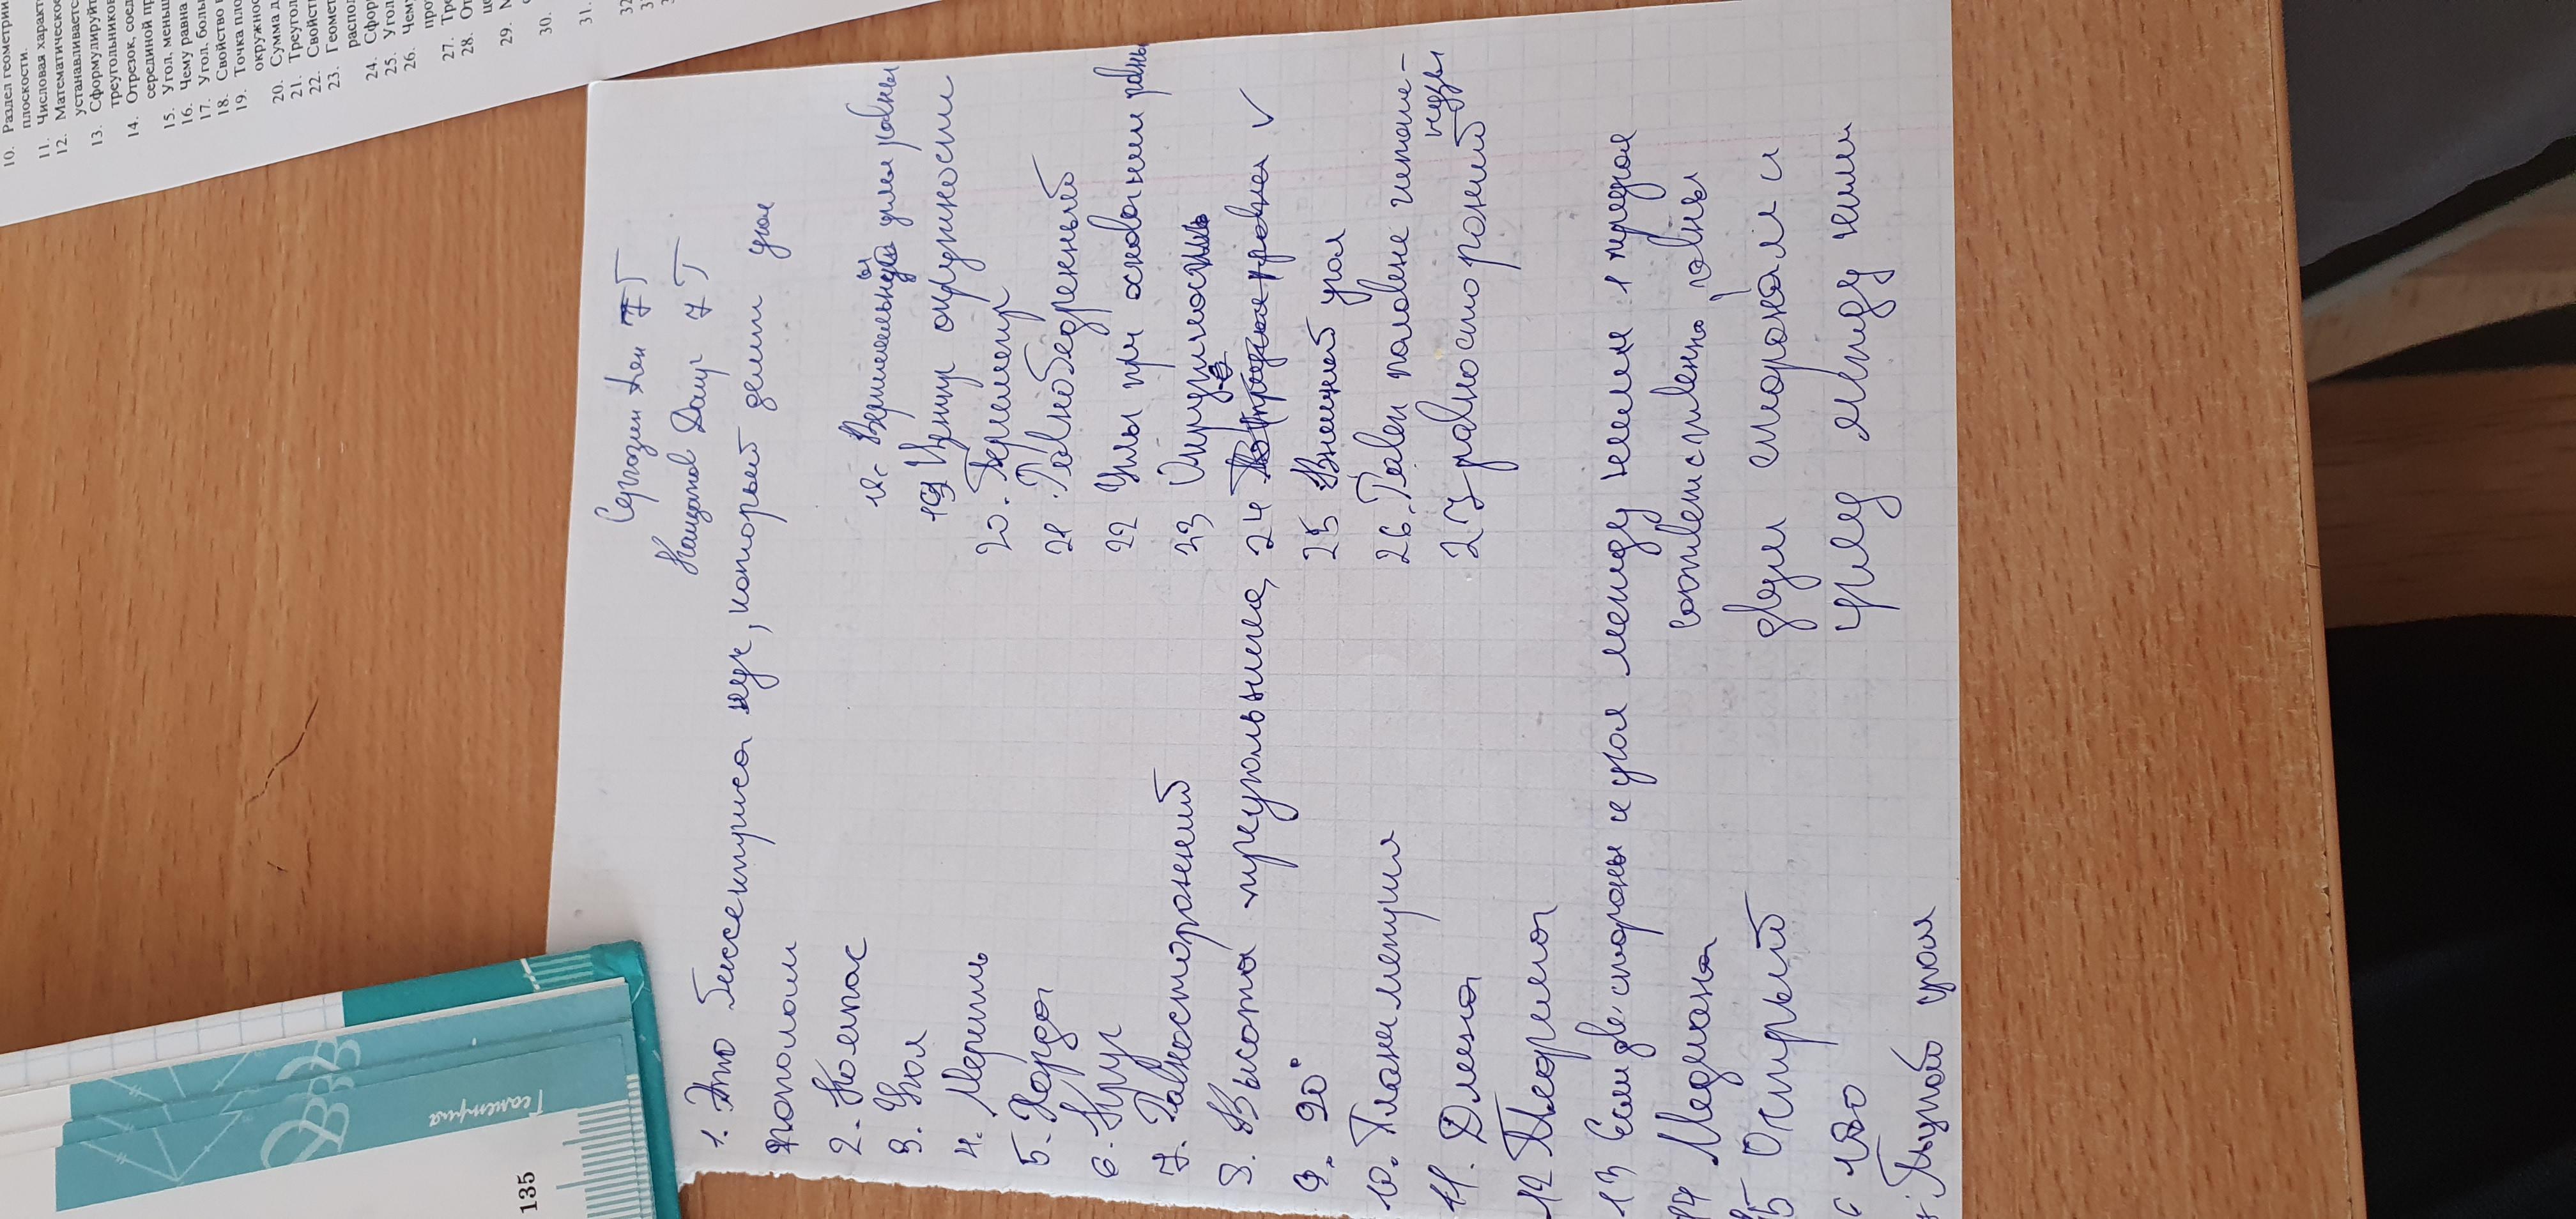 10. Раздел геометрии
плоскости.
11. Числовая характ
12. Математическое
устанавливается
13. Сформулируйт
треугольников
14. Отрезок, соед
серединой пр
15. Угол, меньш
16. Чему равна
17. Угол, боль
18. Свойство
19. Точка пло
окружнос
20. Сумма д
21. Треугол
22. Свойст
23. Геомет
распол
24. Сфор
25. Угол
26. Чему
про
27. Тре
28. От
29.
30.
31.
Геометрия
135
Каирдов Даур 7 Г
1. Это биссектриса луч, который делит угол
пополам
2. Компас
3. Угол
4. Мерить
5. Хорда
6. Круг
7. Равносторонний
8. Высота треугольника
9. 90°
10. Планиметрия
11. Длина
12 Теорема
13 Если две стороны и угол между ними 1 треугол
соответственно равны
двум сторонам и
углу между ними
14 Медиана
15 Острый
6 180
Тупой угол
18. Вертикальные углы равны
19 Центр окружности
20. Периметр
21. Равнобедренный
22 Углы при основании равны
23 Окружность
24
25 Внешний угол
26. Равен половине гипоте-
нузы
27 равносторонний